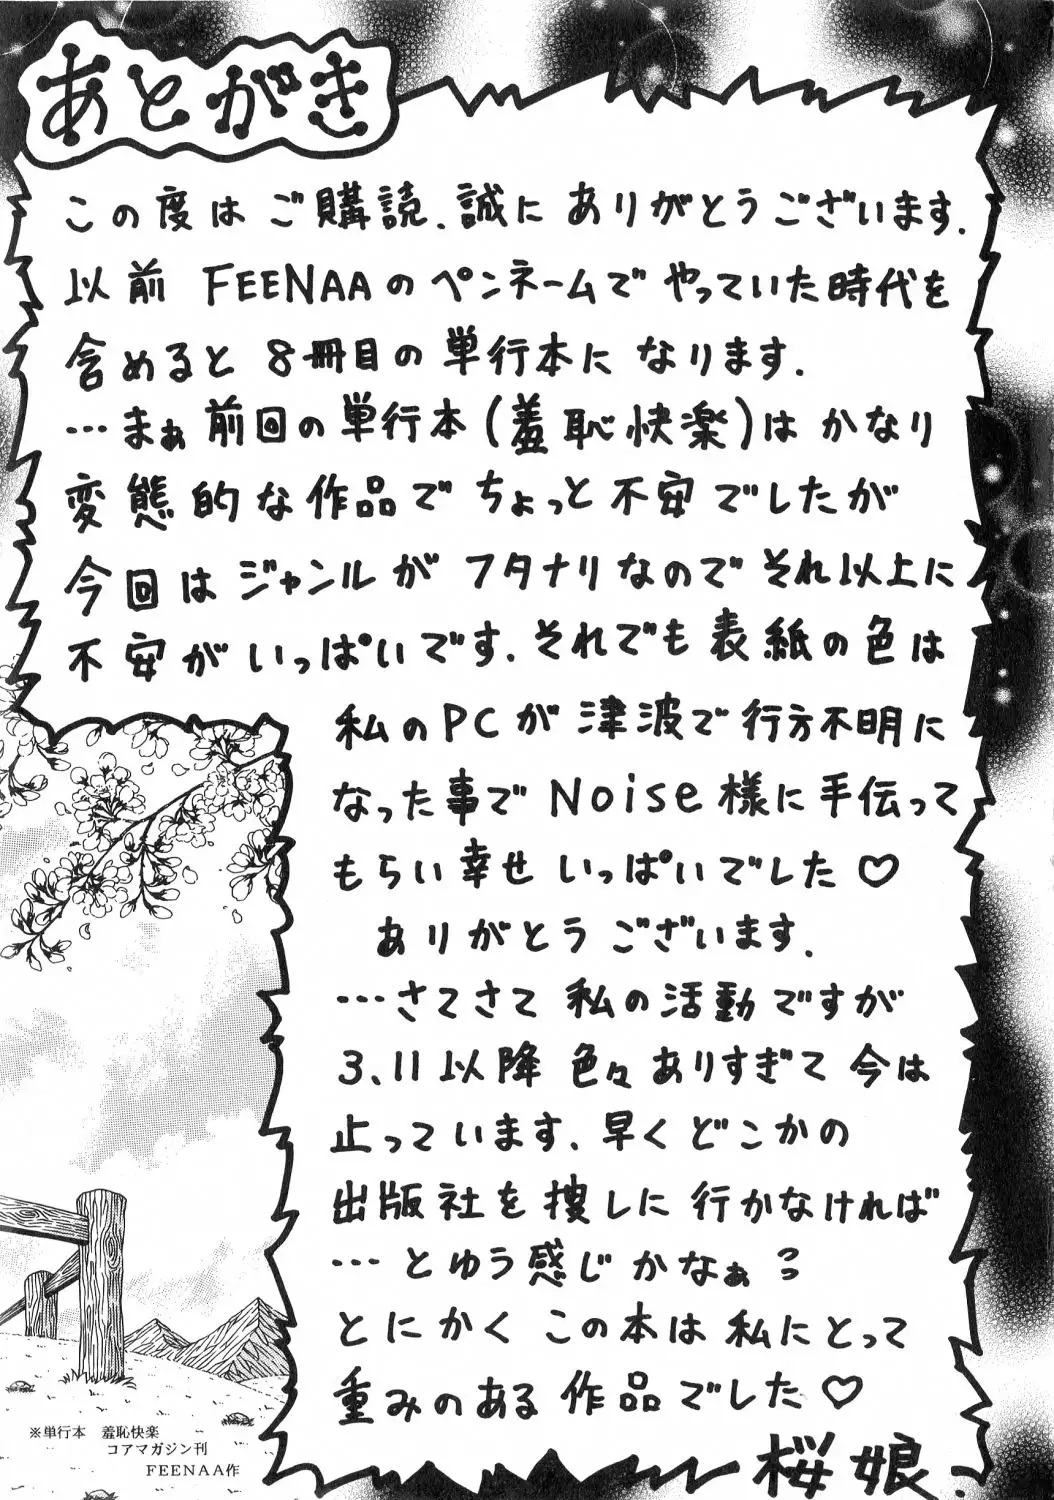 あとがき
この度は ご購読、誠に ありがとうございます.
以前 FEENAAの ペンネームで やっていた時代を
含めると 8冊目の 単行本に なります.
…まぁ 前回の 単行本(羞恥快楽)は かなり
変態的な作品で ちょっと 不安でしたが
今回は ジャンルが フタナリなので それ以上に
不安がいっぱいです. それでも 表紙の色は
私の PCが 津波で 行方不明に
なった事で Noise様に 手伝って
もらい 幸せ いっぱいでした♡
ありがとう ございます.
…さてさて 私の活動ですが
3、11以降 色々 ありすぎて 今は
止っています、早く どこかの
出版社を 捜しに 行かなければ
…とゆう感じ かなぁ っっ
とにかく この本は 私にとって
重みのある 作品でした♡
桜娘.
※単行本 羞恥快楽
コアマガジン刊
FEENAA作